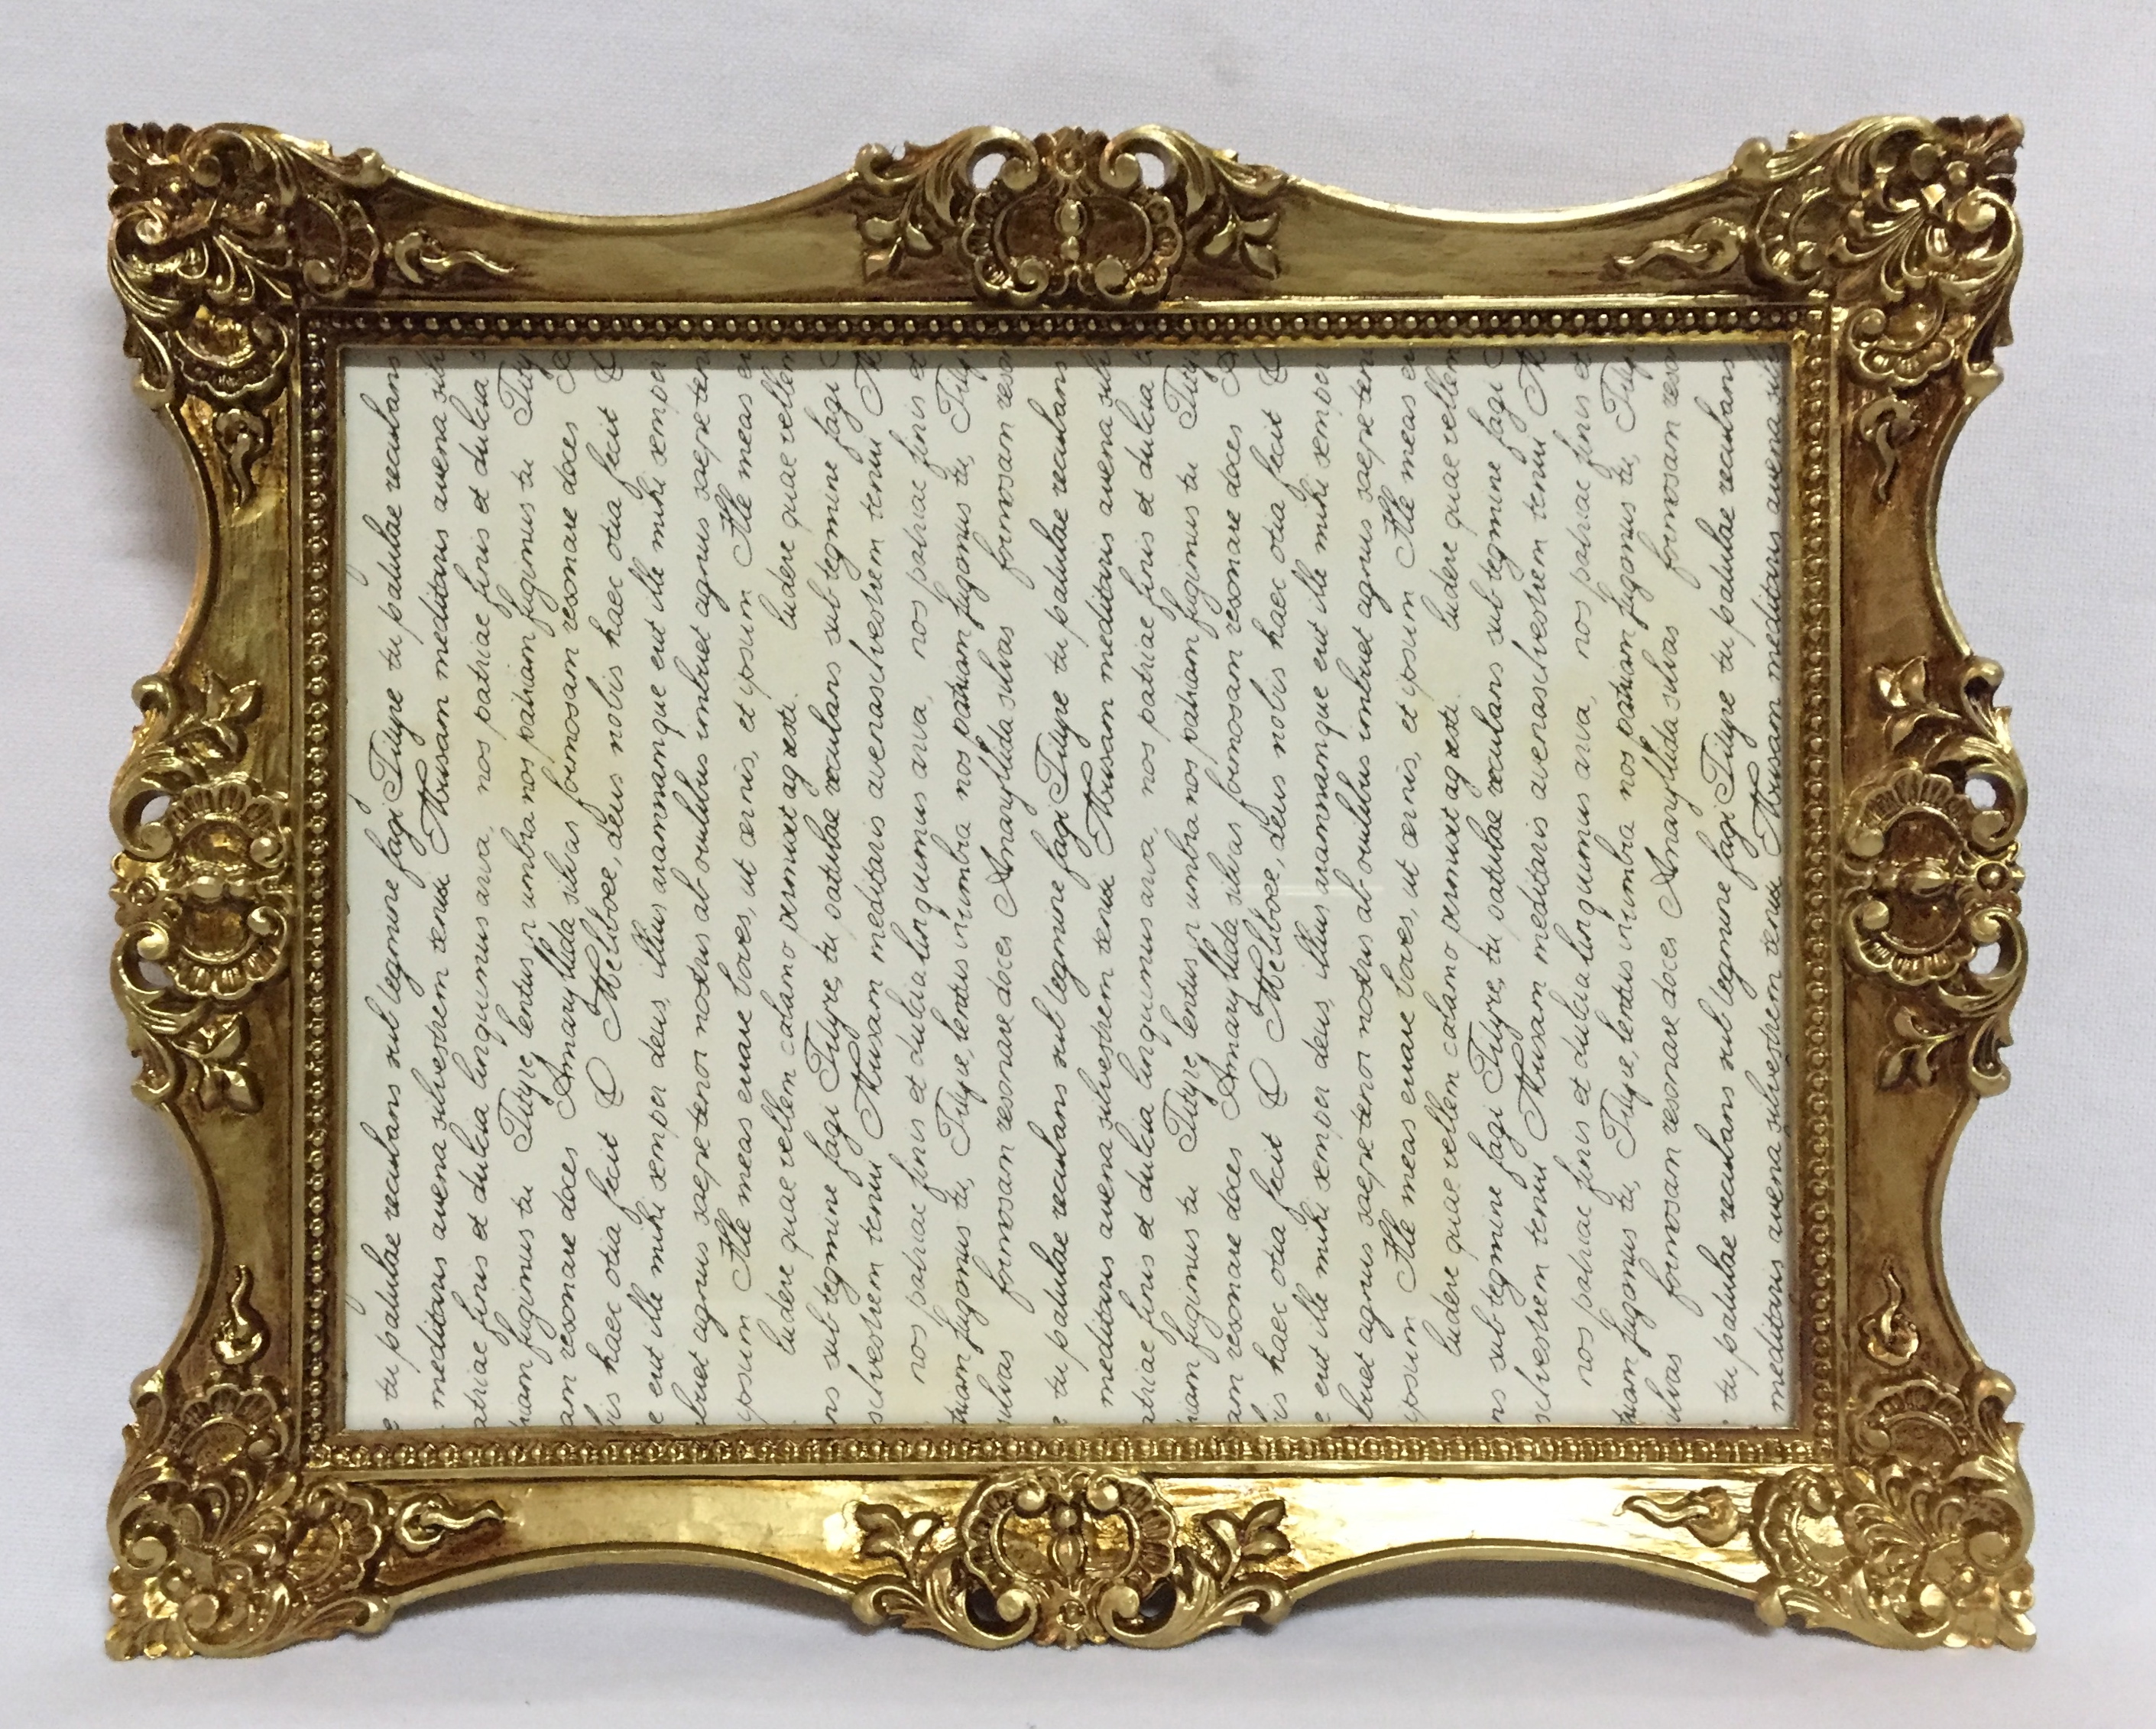 tu patulae recubans sub tegmine fagi Tityre tu patulae recubans
meditaris avena silvestrem tenui Musam meditaris avena silv
atriae finis et dulcia linquimus arva, nos patriae finis et dulcia
riam fugimus tu Tityre, lentus in umbra nos patriam fugimus tu Tity
am resonare doces Amaryllida silvas formosam resonare doces
is haec otia fecit O Meliboee, deus nobis haec otia fecit O
e erit ille mihi semper deus, illius aramnamque erit ille mihi semper
buet agnus saepe tener nostris ab ovilibus imbuet agnus saepe ten
ipsum Ille meas errare boves, ut cernis, et ipsum Ille meas er
ludere quae vellem calamo permisit agresti. ludere quae vellem
ns sub tegmine fagi Tityre, tu patulae recubans sub tegmine fagi
silvestrem tenui Musam meditaris avenasilvestrem tenui M
nos patriae finis et dulcia linquimus arva, nos patriae finis et
triam fugomus tu, Tityre, lentus in umbra nos patriam fugomus tu, Tity
silvas formosam resonare doces Amaryllida silvas formosam reson
tu patulae recubans sub tegmine fagi Tityre tu patulae recubans
meditaris avena silvestrem tenui Musam meditaris avena silv
atriae finis et dulcia linquimus arva, nos patriae finis et dulcia
riam fugimus tu Tityre, lentus in umbra nos patriam fugimus tu Tity
am resonare doces Amaryllida silvas formosam resonare doces
is haec otia fecit O Meliboee, deus nobis haec otia fecit O
e erit ille mihi semper deus, illius aramnamque erit ille mihi semper
buet agnus saepe tener nostris ab ovilibus imbuet agnus saepe ten
ipsum Ille meas errare boves, ut cernis, et ipsum Ille meas er
ludere quae vellem calamo permisit agresti. ludere quae vellem
ns sub tegmine fagi Tityre, tu patulae recubans sub tegmine fagi
silvestrem tenui Musam meditaris avenasilvestrem tenui M
nos patriae finis et dulcia linquimus arva, nos patriae finis et
triam fugomus tu, Tityre, lentus in umbra nos patriam fugomus tu, Tity
silvas formosam resonare doces Amaryllida silvas formosam reson
tu patulae recubans sub tegmine fagi Tityre tu patulae recubans
meditaris avena silvestrem tenui Musam meditaris avena silv